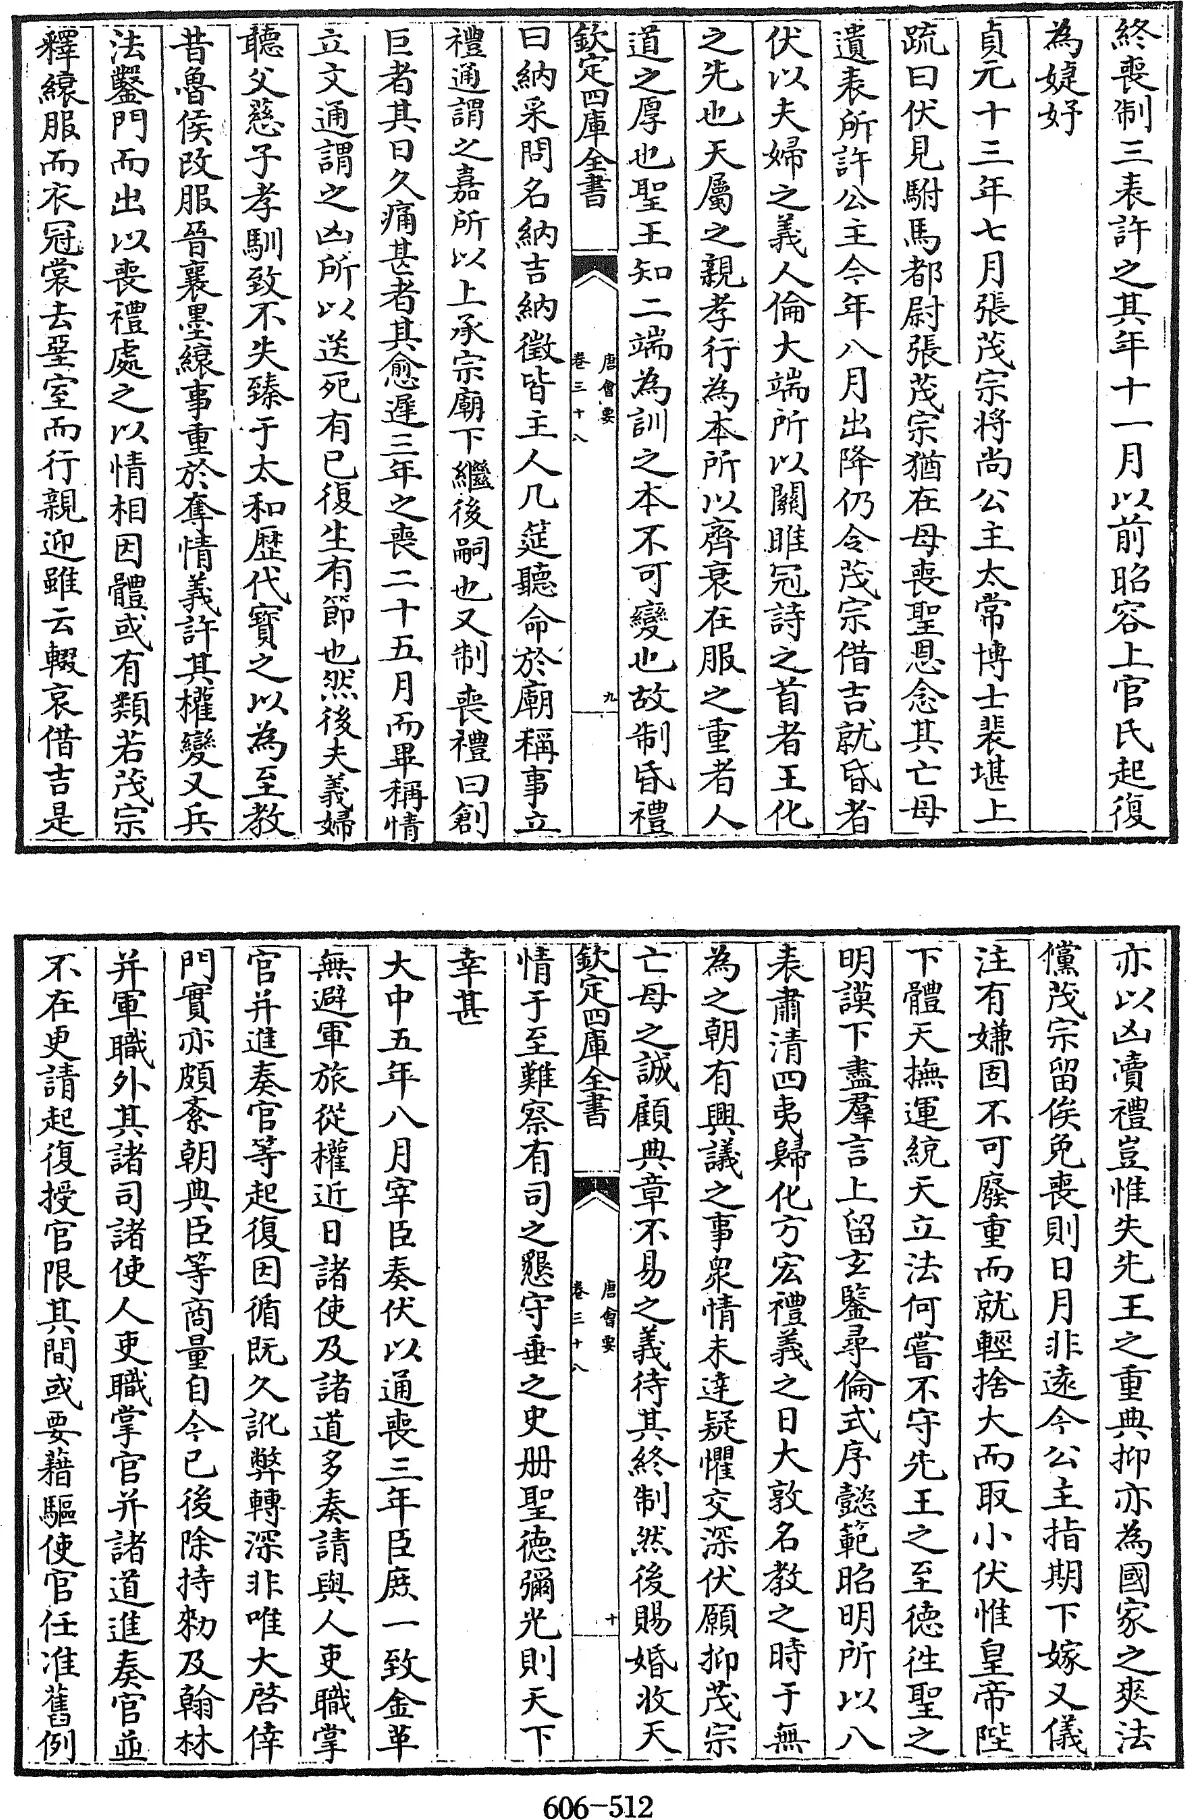 終喪制三表許之其年十一月以前昭容上官氏起復
為婕妤
貞元十三年七月張茂宗將尚公主太常博士裴堪上
疏曰伏見駙馬都尉張茂宗猶在母喪聖恩念其亡母
遺表所許公主今年八月出降仍令茂宗借吉就昏者
伏以夫婦之義人倫大端所以關雎冠詩之首者王化
之先也天屬之親孝行為本所以齊衰在服之重者人
道之厚也聖王知二端為訓之本不可變也故制昏禮
欽定四庫全書
唐會要
卷三十八
九
曰納采問名納吉納徵皆主人几筵聽命於廟稱事立
禮通謂之嘉所以上承宗廟下繼後嗣也又制喪禮曰創
巨者其日久痛甚者其愈遲三年之喪二十五月而畢稱情
立文通謂之凶所以送死有已復生有節也然後夫義婦
聽父慈子孝馴致不失臻于太和歷代寶之以為至教
昔魯侯改服晉襄墨縗事重於奪情義許其權變又兵
法鑿門而出以喪禮處之以情相因體或有類若茂宗
釋縗服而衣冠裳去堊室而行親迎雖云輟哀借吉是
亦以凶瀆禮豈惟失先王之重典抑亦為國家之爽法
儻茂宗留俟免喪則日月非遠今公主指期下嫁又儀
注有嫌固不可廢重而就輕捨大而取小伏惟皇帝陛
下體天撫運統天立法何嘗不守先王之至德徃聖之
明謨下盡羣言上留玄鑒尋倫式序懿範昭明所以八
表肅清四夷歸化方宏禮義之日大敦名教之時于無
為之朝有興議之事衆情未達疑懼交深伏願抑茂宗
亡母之誠顧典章不易之義待其終制然後賜婚收天
欽定四庫全書
唐會要
卷三十八
十
情于至難察有司之懇守垂之史册聖德彌光則天下
幸甚
大中五年八月宰臣奏伏以通喪三年臣庶一致金革
無避軍旅從權近日諸使及諸道多奏請與人吏職掌
官并進奏官等起復因循既久訛弊轉深非唯大啓倖
門實亦頗紊朝典臣等商量自今已後除持勑及翰林
并軍職外其諸司諸使人吏職掌官并諸道進奏官並
不在更請起復授官限其間或要藉驅使官任准舊例
606-512